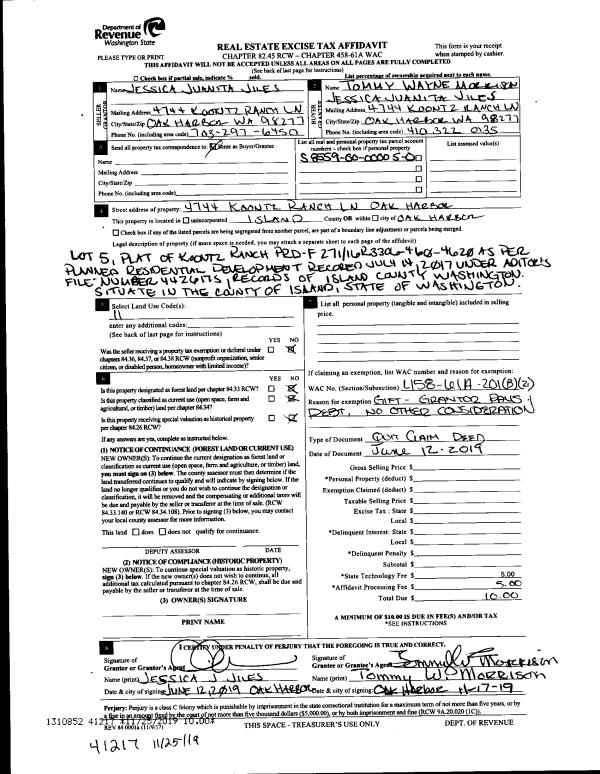 Department of
Revenue
Washington State
PLEASE TYPE OR PRINT
REAL ESTATE EXCISE TAX AFFIDAVIT
CHAPTER 82.45 RCW – CHAPTER 458-61A WAC
This form is your receipt
when stamped by cashier.
THIS AFFIDAVIT WILL NOT BE ACCEPTED UNLESS ALL AREAS ON ALL PAGES ARE FULLY COMPLETED
(See back of last page for instructions)
Check box if partial sale, indicate % sold.
List percentage of ownership acquired next to each name.
1 Name JESSICA JUANITA JILES
SELLER GRANTOR
Mailing Address 4744 KOONTZ RANCH LN
City/State/Zip OAK HARBOR WA 98277
Phone No. (including area code) 703-297-6450
2 Name TOMMY WAYNE MORRISON
JESSICA JUANITA JILES
BUYER GRANTEE
Mailing Address 4744 KOONTZ RANCH LN
City/State/Zip OAK HARBOR WA 98277
Phone No. (including area code) 410 322 0135
3 Send all property tax correspondence to: Same as Buyer/Grantee
Name
Mailing Address
City/State/Zip
Phone No. (including area code)
List all real and personal property tax parcel account
numbers – check box if personal property
S8559-00-00005-0
List assessed value(s)
4 Street address of property: 4744 KOONTZ RANCH LN OAK HARBOR
This property is located in unincorporated ISLAND County OR within city of OAK HARBOR
Check box if any of the listed parcels are being segregated from another parcel, are part of a boundary line adjustment or parcels being merged.
Legal description of property (if more space is needed, you may attach a separate sheet to each page of the affidavit)
LOT 5, PLAT OF KOONTZ RANCH PRD-F 271/16R3306-460-4620 AS PER
PLANNED RESIDENTIAL DEVELOPMENT RECORED JULY 14, 2017 UNDER AUDITOR'S
FILE NUMBER 4426175, RECORDS OF ISLAND COUNTY WASHINGTON.
SITUATE IN THE COUNTY OF ISLAND, STATE OF WASHINGTON.
5 Select Land Use Code(s):
11
enter any additional codes:
(See back of last page for instructions)
YES NO
Was the seller receiving a property tax exemption or deferral under
chapters 84.36, 84.37, or 84.38 RCW (nonprofit organization, senior
citizen, or disabled person, homeowner with limited income)?
6 YES NO
Is this property designated as forest land per chapter 84.33 RCW?
Is this property classified as current use (open space, farm and
agricultural, or timber) land per chapter 84.34?
Is this property receiving special valuation as historical property
per chapter 84.26 RCW?
If any answers are yes, complete as instructed below.
(1) NOTICE OF CONTINUANCE (FOREST LAND OR CURRENT USE)
NEW OWNER(S): To continue the current designation as forest land or
classification as current use (open space, farm and agriculture, or timber) land,
you must sign on (3) below. The county assessor must then determine if the
land transferred continues to qualify and will indicate by signing below. If the
land no longer qualifies or you do not wish to continue the designation or
classification, it will be removed and the compensating or additional taxes will
be due and payable by the seller or transferor at the time of sale. (RCW
84.33.140 or RCW 84.34.108). Prior to signing (3) below, you may contact
your local county assessor for more information.
This land does does not qualify for continuance.
DEPUTY ASSESSOR DATE
(2) NOTICE OF COMPLIANCE (HISTORIC PROPERTY)
NEW OWNER(S): To continue special valuation as historic property,
sign (3) below. If the new owner(s) does not wish to continue, all
additional tax calculated pursuant to chapter 84.26 RCW, shall be due and
payable by the seller or transferor at the time of sale.
(3) OWNER(S) SIGNATURE
PRINT NAME
7 List all personal property (tangible and intangible) included in selling
price.
If claiming an exemption, list WAC number and reason for exemption:
WAC No. (Section/Subsection) 458-61A-201(B)(2)
Reason for exemption GIFT - GRANTOR PAYS
DEBT, NO OTHER CONSIDERATION
Type of Document QUIT CLAIM DEED
Date of Document June 12. 2019
Gross Selling Price $
*Personal Property (deduct) $
Exemption Claimed (deduct) $
Taxable Selling Price $
Excise Tax : State $
Local $
*Delinquent Interest: State $
Local $
*Delinquent Penalty $
Subtotal $
*State Technology Fee $ 5.00
*Affidavit Processing Fee $ 5.00
Total Due $ 10.00
A MINIMUM OF $10.00 IS DUE IN FEE(S) AND/OR TAX
*SEE INSTRUCTIONS
8 I CERTIFY UNDER PENALTY OF PERJURY THAT THE FOREGOING IS TRUE AND CORRECT.
Signature of
Grantor or Grantor's Agent
Name (print) JESSICA J JILES
Date & city of signing: JUNE 12, 2019 OAK HARBOR
Signature of
Grantee or Grantee's Agent Tommy W Morrison
Name (print) Tommy W. MORRISON
Date & city of signing: Oak Harbor 11-17-19
Perjury: Perjury is a class C felony which is punishable by imprisonment in the state correctional institution for a maximum term of not more than five years, or by
a fine in an amount fixed by the court of not more than five thousand dollars ($5,000.00), or by both imprisonment and fine (RCW 9A.20.020 (1C)).
1310852 41217 *11/25/2019 10.00*
REV 84 0001a (11/9/17)
THIS SPACE - TREASURER'S USE ONLY
DEPT. OF REVENUE
41217 11/25/19